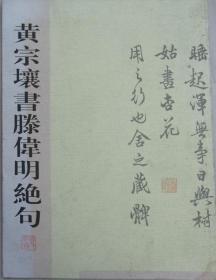 黄宗壤書滕偉明絕句
睡起渾無事日與村
姑畫杏花
用之行也舍之藏